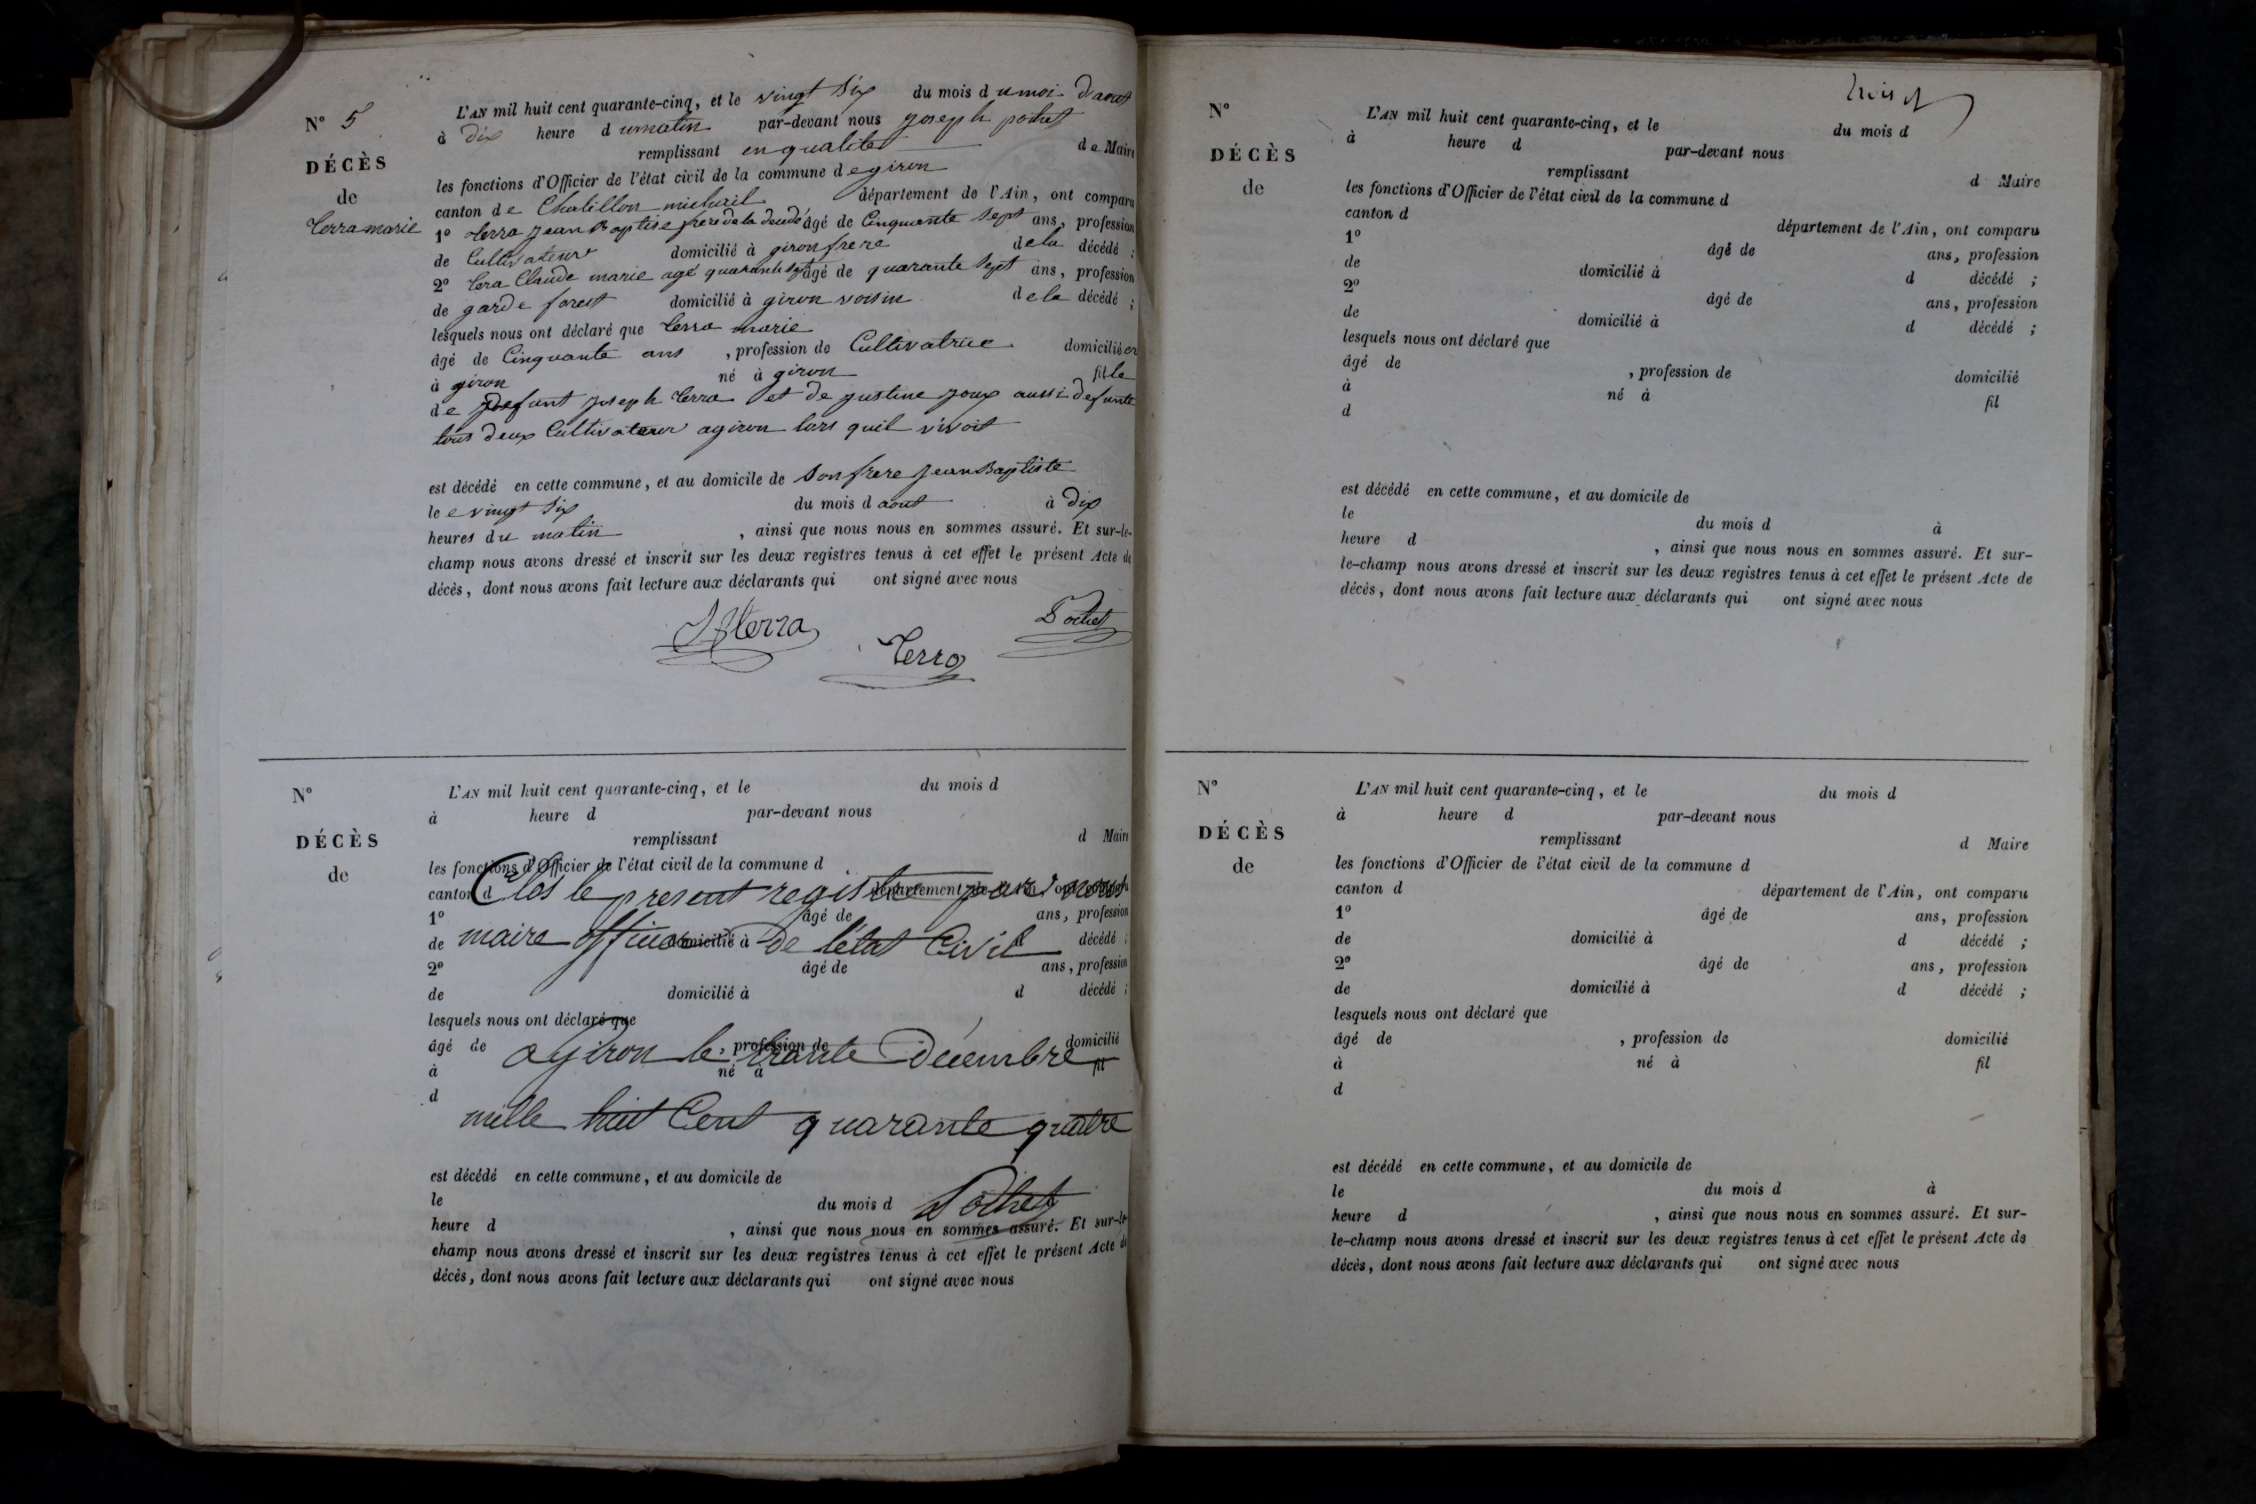 N° 5
DÉCÈS
de
Terra marie
L'AN mil huit cent quarante-cinq, et le vingt six du mois d umois d'aout
à dix heure d umatin par-devant nous joseph pochet
remplissant en qualité de Maire
les fonctions d'Officier de l'état civil de la commune de giron
canton de Chatillon michail département de l'Ain, ont comparu
1° terra jean Baptise frere de la âgé de Cinquante sept ans, profession
de Cultivateur domicilié à giron frere de la décédé ;
2° tera Claude marie agé quarante sept âgé de quarante sept ans, profession
de garde forest domicilié à giron voisin de la décédé ;
lesquels nous ont déclaré que terra marie
âgé de Cinquante ans , profession de Cultivatrice domicilié en
à giron né à giron fille
de defunt joseph terra et de justine joux aussi defunte
tous deux Cultivateur agiron lors quil vivoit
est décédé en cette commune, et au domicile de son frere jean Baptiste
le e vingt six du mois d aout à dix
heures du matin , ainsi que nous nous en sommes assuré. Et sur-le-
champ nous avons dressé et inscrit sur les deux registres tenus à cet effet le présent Acte de
décès, dont nous avons fait lecture aux déclarants qui ont signé avec nous
JB terra
Terra
Pochet
N°
DÉCÈS
de
L'AN mil huit cent quarante-cinq, et le du mois d
à heure d par-devant nous
remplissant d Maire
les fonctions d'Officier de l'état civil de la commune d
canton d département de
Clos le present registre par nous
1° âgé de ans, profession
de domicilié à d décédé ;
maire officier de l'état Civil
2° âgé de ans, profession
de domicilié à d décédé ;
lesquels nous ont déclaré que
âgé de , profession de domicilié
agiron le trante Décembre
à né à fil
d
mille huit Cent quarante quatre
est décédé en cette commune, et au domicile de
le du mois d
Pochet
heure d , ainsi que nous nous en sommes assuré. Et sur-le-
champ nous avons dressé et inscrit sur les deux registres tenus à cet effet le présent Acte de
décès, dont nous avons fait lecture aux déclarants qui ont signé avec nous
N°
DÉCÈS
de
L'AN mil huit cent quarante-cinq, et le du mois d
à heure d par-devant nous
remplissant d Maire
les fonctions d'Officier de l'état civil de la commune d
canton d département de l'Ain, ont comparu
1° âgé de ans, profession
de domicilié à d décédé ;
2° âgé de ans, profession
de domicilié à d décédé ;
lesquels nous ont déclaré que
âgé de , profession de domicilié
à né à fil
d
est décédé en cette commune, et au domicile de
le du mois d à
heure d , ainsi que nous nous en sommes assuré. Et sur-
le-champ nous avons dressé et inscrit sur les deux registres tenus à cet effet le présent Acte de
décès, dont nous avons fait lecture aux déclarants qui ont signé avec nous
N°
DÉCÈS
de
L'AN mil huit cent quarante-cinq, et le du mois d
à heure d par-devant nous
remplissant d Maire
les fonctions d'Officier de l'état civil de la commune d
canton d département de l'Ain, ont comparu
1° âgé de ans, profession
de domicilié à d décédé ;
2° âgé de ans, profession
de domicilié à d décédé ;
lesquels nous ont déclaré que
âgé de , profession de domicilié
à né à fil
d
est décédé en cette commune, et au domicile de
le du mois d à
heure d , ainsi que nous nous en sommes assuré. Et sur-
le-champ nous avons dressé et inscrit sur les deux registres tenus à cet effet le présent Acte de
décès, dont nous avons fait lecture aux déclarants qui ont signé avec nous